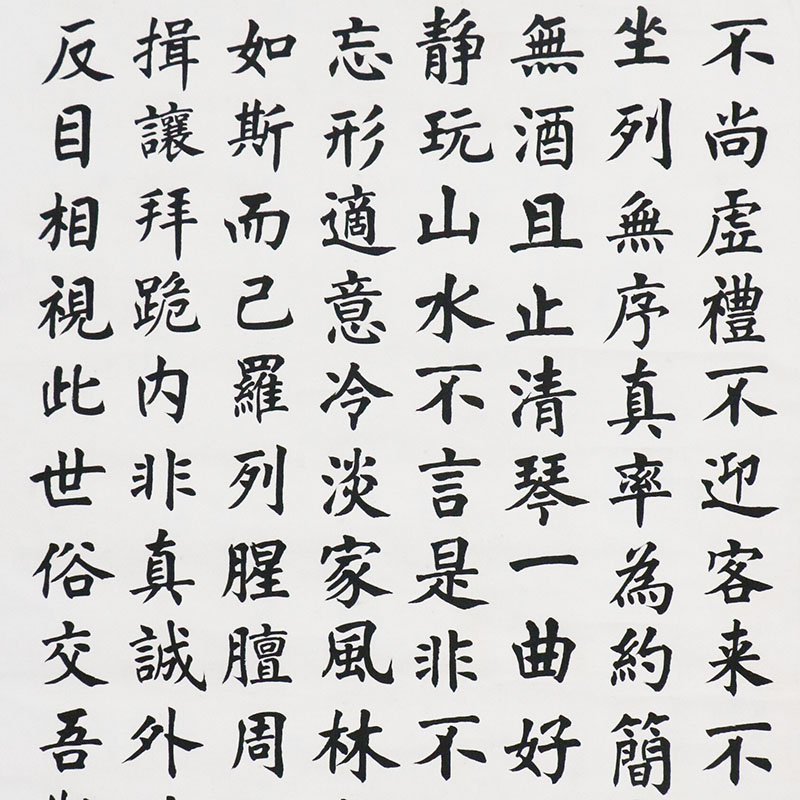 不尚虛禮不迎客来不
坐列無序真率為約簡
無酒且止清琴一曲好
静玩山水不言是非不
忘形適意冷淡家風林
如斯而己羅列腥膻周
揖讓拜跪内非真誠外
反目相視此世俗交吾